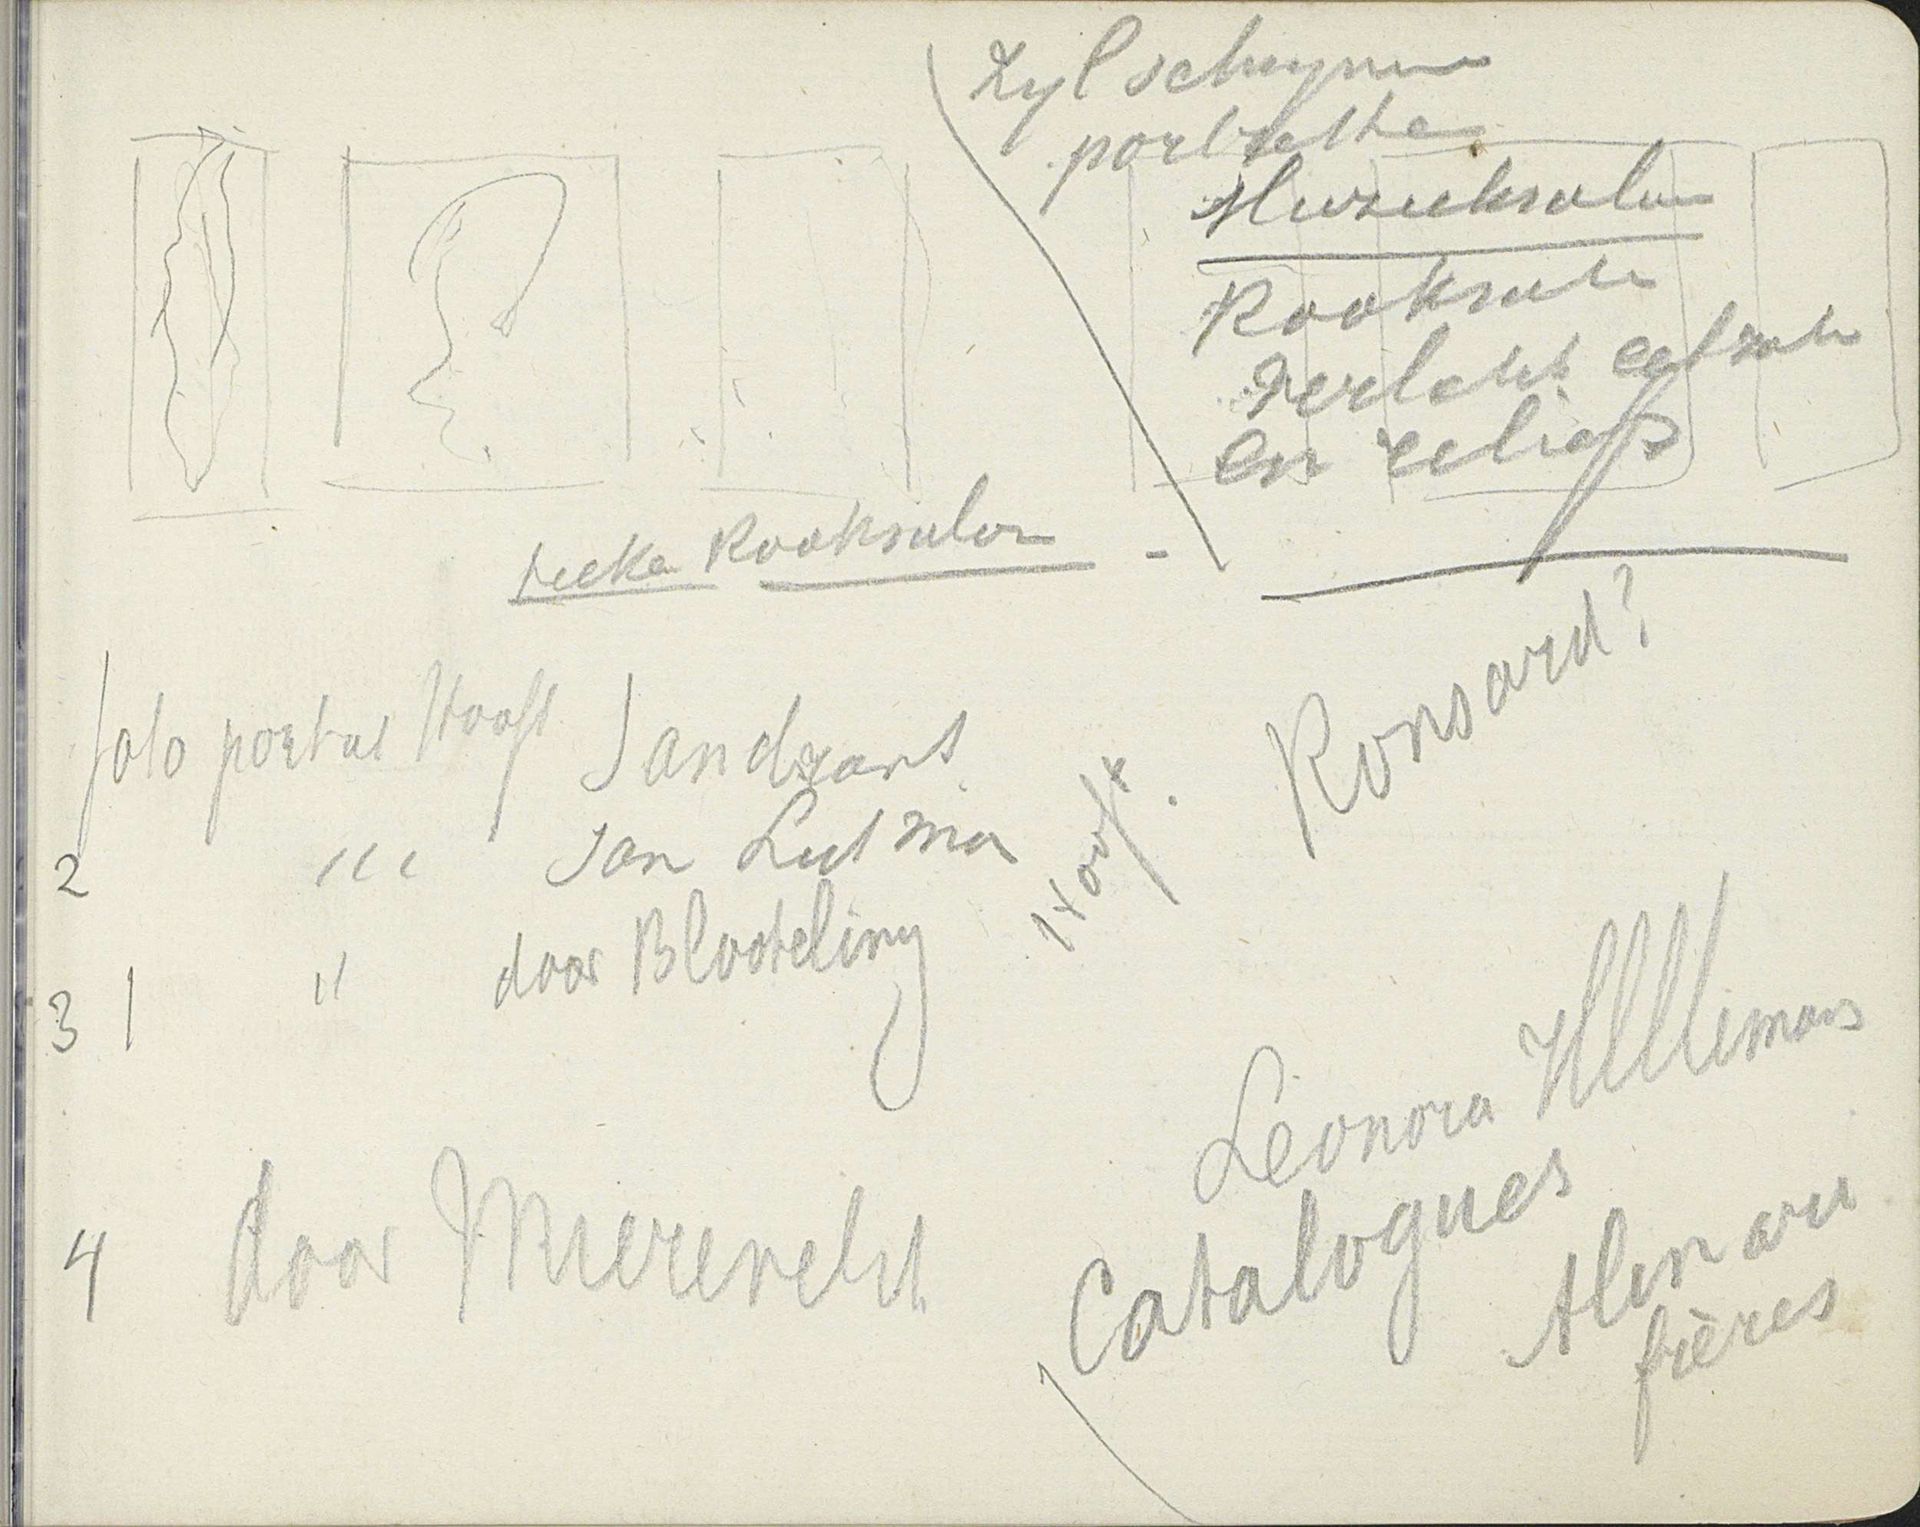 portrette
Muzieksalon
Rooksalon
en reliefs
Rooksalon
foto portret Hooft Sandrart
2 " " Jan Lutma
3 1 " door Blooteling
4 door Miereveld
Hooft.
Ronsard?
Leonora Hellemans
Catalogues
Alinari
frères